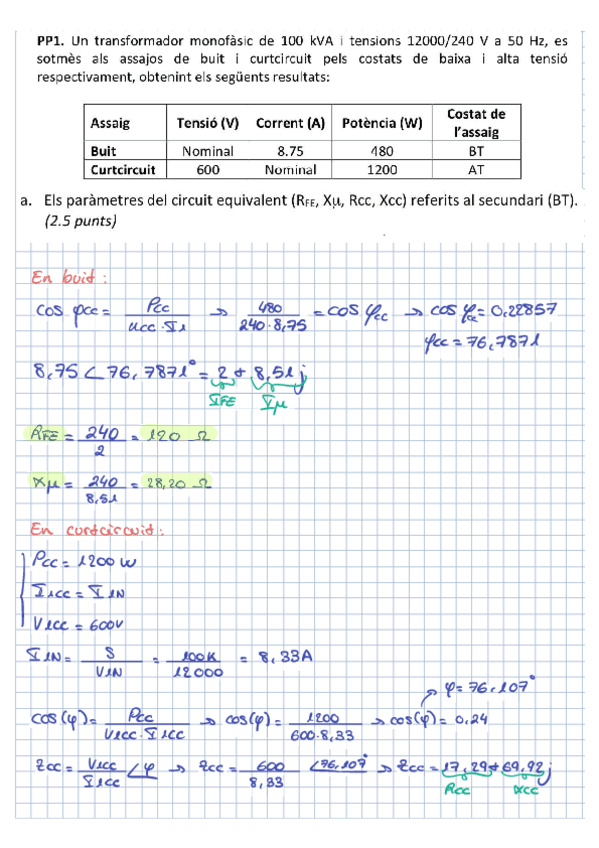 PP1. Un transformador monofàsic de 100 kVA i tensions 12000/240 V a 50 Hz, es
sotmès als assajos de buit i curtcircuit pels costats de baixa i alta tensió
respectivament, obtenint els següents resultats:
Assaig Tensió (V) Corrent (A) Potència (W) Costat de l'assaig
Buit Nominal 8.75 480 BT
Curtcircuit 600 Nominal 1200 AT
a. Els paràmetres del circuit equivalent (RFE, Xµ, Rcc, Xcc) referits al secundari (BT).
(2.5 punts)
En buit:
cos φcc = Pcc / Ucc · I1 → 480 / 240·8,75 = cos φcc → cos φcc = 0,22857
φcc = 76,7871
8,75 ∠76,7871° = 2 + 8,51j
IFE Iµ
RFE = 240 / 2 = 120 Ω
Xµ = 240 / 8,51 = 28,20 Ω
En curtcircuit:
Pcc = 1200 W
I1cc = I1N
V1cc = 600V
I1N = S / V1N = 100K / 12000 = 8,33A
φ = 76,107°
cos(φ) = Pcc / V1cc · I1cc → cos(φ) = 1200 / 600·8,33 → cos(φ) = 0,24
Zcc = V1cc / I1cc ∠φ → Zcc = 600 / 8,33 ∠76,107° → Zcc = 17,29 + 69,92j
Rcc Xcc